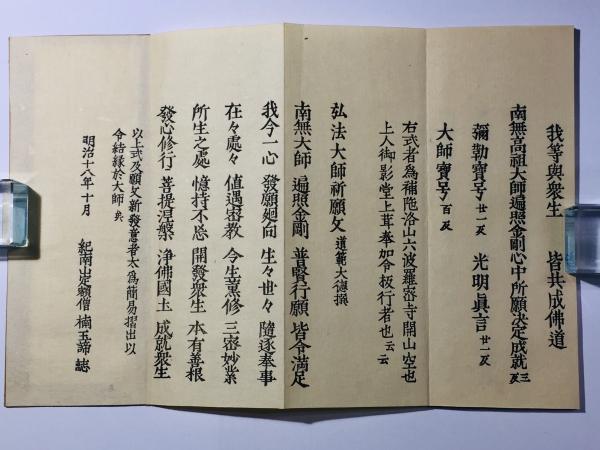 我等與衆生　皆共成佛道
南無高祖大師遍照金剛心中所願決定成就 三反
彌勒寶号 廿一反　光明眞言 廿一反
大師寶号 百反
右式者爲補陀洛山六波羅密寺開山空也
上人御影堂上葺奉加令扱行者也 云云
弘法大師祈願文 道範大德撰
南無大師　遍照金剛　普賢行願　皆令滿足
我今一心　發願廻向　生々世々　隨逐奉事
在々處々　値遇密教　今生薫修　三密妙業
所生之處　憶持不忘　開發衆生　本有善根
發心修行　菩提涅槃　淨佛國土　成就衆生
以上式及願文新發意者太爲簡易摺出以
令結緣於大師 矣
明治十八年十月　紀南山定額僧　楠玉諦　誌